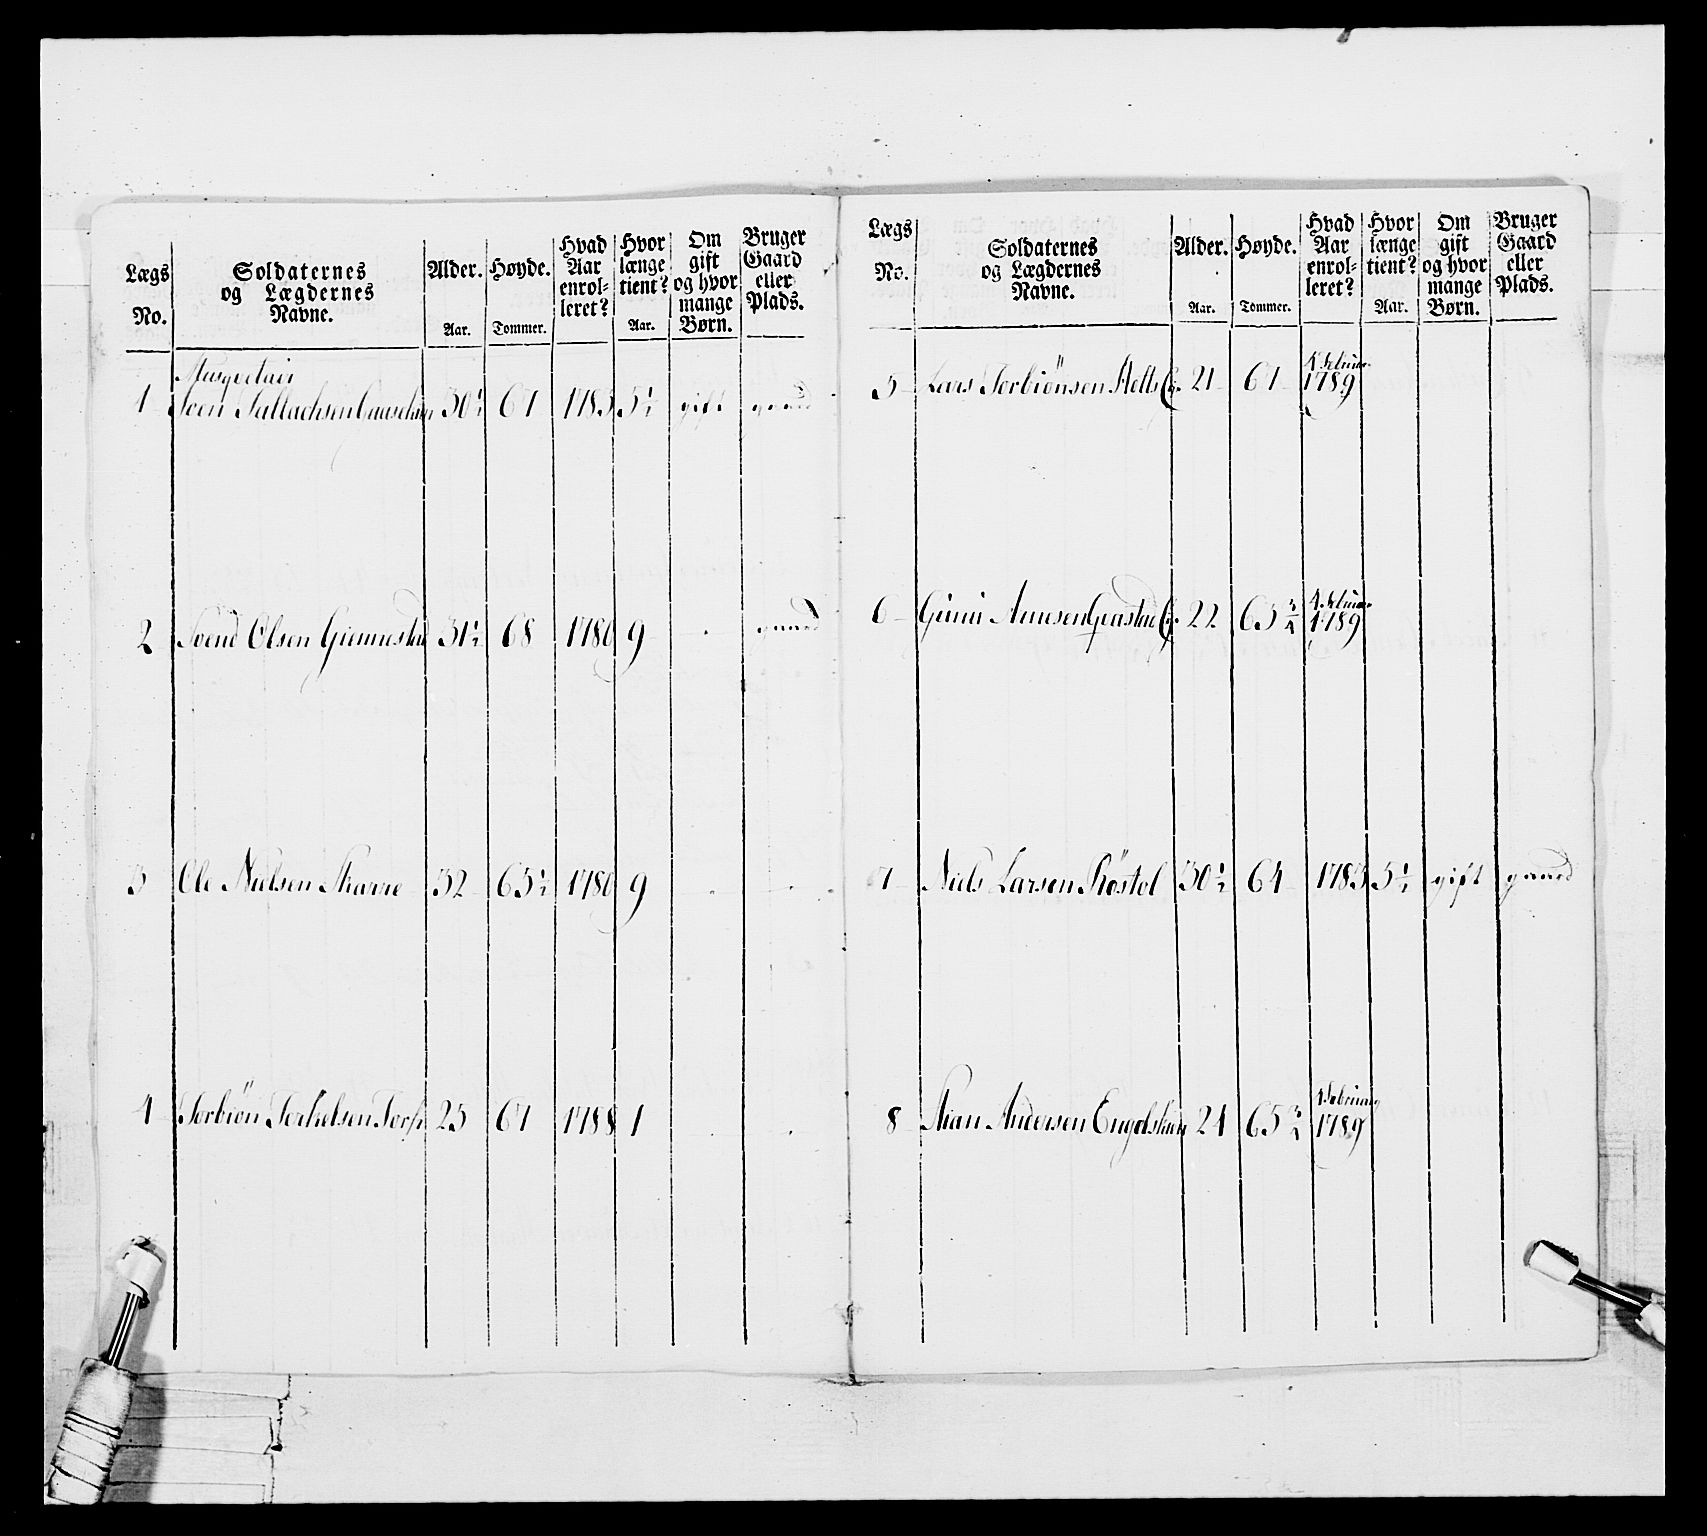 Lægs No. Soldaternes og Lægdernes Navne. Alder. Aar. Høyde. Tommer. Hvad Aar enrolleret? Hvor længe tient? Aar. Om gift og hvor mange Børn. Bruger Gaard eller Plads.
Musquetair
1 Sven 30½ 67 1783 5½ gift gaard
2 Svend Olsen 31½ 68 1780 9 - gaard
3 Ole Nielsen Skarre 32 65½ 1780 9 - -
4 Torbiön Torkelsen 25 67 1788 1 - -
Lægs No. Soldaternes og Lægdernes Navne. Alder. Aar. Høyde. Tommer. Hvad Aar enrolleret? Hvor længe tient? Aar. Om gift og hvor mange Børn. Bruger Gaard eller Plads.
5 Lars Torbiönsen 21 67 1789
6 22 65¾ 1789
7 Niels Larsen Röstöl 30½ 64 1783 5½ gift gaard
8 Stian Andersen 24 65¾ 1789